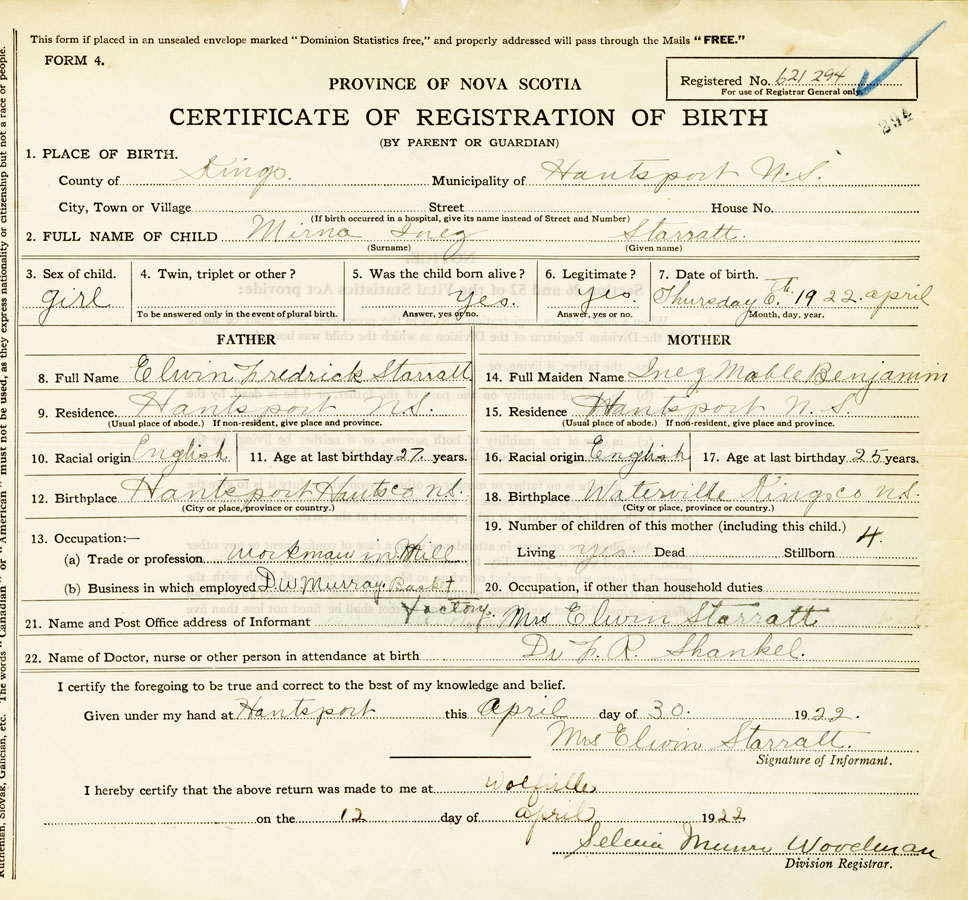 This form if placed in an unsealed envelope marked "Dominion Statistics free," and properly addressed will pass through the Mails "FREE."
FORM 4.
Registered No. 621 294
For use of Registrar General only.
294
PROVINCE OF NOVA SCOTIA
CERTIFICATE OF REGISTRATION OF BIRTH
(BY PARENT OR GUARDIAN)
1. PLACE OF BIRTH.
County of Kings. Municipality of Hantsport N.S.
City, Town or Village Street House No.
(If birth occurred in a hospital, give its name instead of Street and Number)
2. FULL NAME OF CHILD Mirna Inez Starratt.
(Surname) (Given name)
3. Sex of child. 4. Twin, triplet or other? 5. Was the child born alive? 6. Legitimate? 7. Date of birth.
girl yes. yes. Thursday 6th. 1922. april
To be answered only in the event of plural birth. Answer, yes or no. Answer, yes or no. Month, day, year.
FATHER MOTHER
8. Full Name Elwin Fredrick Starratt 14. Full Maiden Name Inez Mable Benjamin
9. Residence. Hantsport N.S. 15. Residence Hantsport N.S.
(Usual place of abode.) If non-resident, give place and province. (Usual place of abode.) If non-resident, give place and province.
10. Racial origin English 11. Age at last birthday 27 years. 16. Racial origin English 17. Age at last birthday 25 years.
12. Birthplace Hantsport Hants co N.S. 18. Birthplace Waterville Kings co N.S.
(City or place, province or country.) (City or place, province or country.)
13. Occupation:— 19. Number of children of this mother (including this child.) 4.
(a) Trade or profession workman in Mill Living yes. Dead Stillborn
(b) Business in which employed D.W Murray. Baskt factory. 20. Occupation, if other than household duties
21. Name and Post Office address of Informant Mrs Elwin Starratt
22. Name of Doctor, nurse or other person in attendance at birth Dr F. R. Shankel.
I certify the foregoing to be true and correct to the best of my knowledge and belief.
Given under my hand at Hantsport this april day of 30. 1922.
Mrs Elwin Starratt.
Signature of Informant.
I hereby certify that the above return was made to me at Wolfville
on the 12 day of april 1922
Woodman
Division Registrar.
Ruthenian, Slovak, Galician, etc. The words "Canadian" or "American" must not be used, as they express nationality or citizenship but not a race or people.